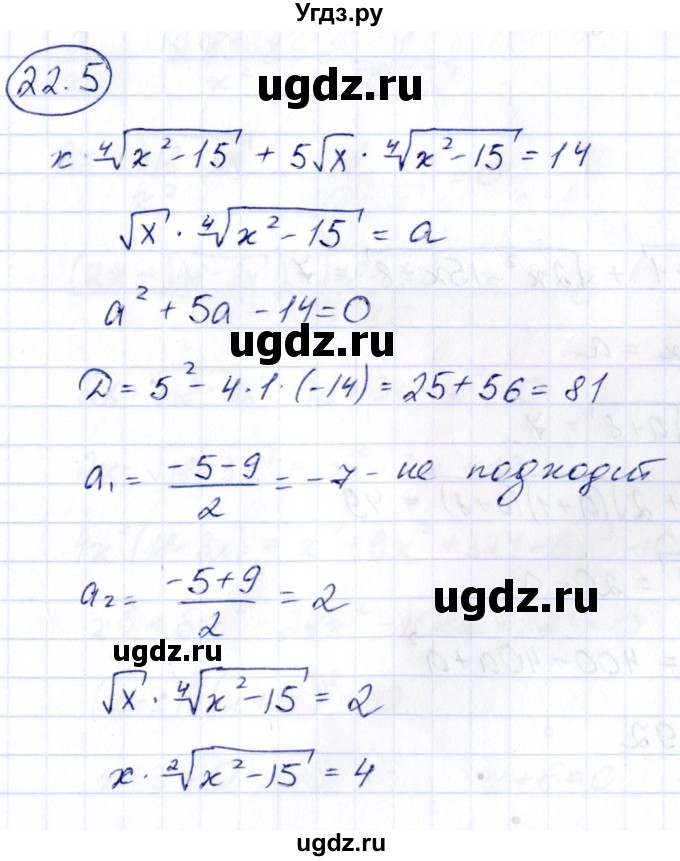 Угдз.ру
22.5
ugdz.ru
x · ∜(x² - 15) + 5√x · ∜(x² - 15) = 14
√x · ∜(x² - 15) = a
a² + 5a - 14 = 0
ugdz.ru
D = 5² - 4 · 1 · (-14) = 25 + 56 = 81
a₁ = (-5 - 9)/2 = -7 - не подходит
a₂ = (-5 + 9)/2 = 2
ugdz.ru
ugdz.ru
√x · ∜(x² - 15) = 2
x · ²√(x² - 15) = 4
ugdz.ru